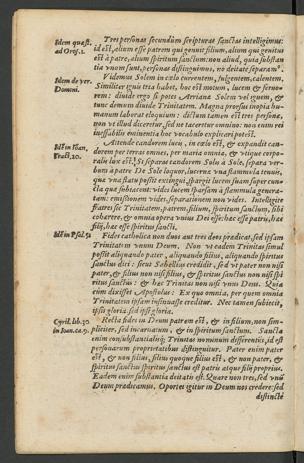 Idem quæst.
ad Oros. 1.
Tres personas secundùm scripturas sanctas intelligimus:
id est, alium esse patrem qui genuit filium, alium qui genitus
est à patre, alium spiritum sanctum: non aliud, quia substan
tia vnum sunt, personas distinguimus, nō deitatē separamᵘ.
Idem de ver.
Domini.
Videmus Solem in cælo currentem, fulgentem, calentem,
Similiter ignis tria habet, hoc est motum, lucem & feruo-
rem: diuide ergo si potes Arriane Solem vel ignem, &
tunc demum diuide Trinitatem. Magna prorsus inopia hu-
manum laborat eloquium: dictum tamen est tres personæ,
non vt illud diceretur, sed ne taceretur omnino: non enim rei
ineffabilis eminentia hoc vocabulo explicari potest.
Idē in Ioan.
Tract. 20.
Attende candorem lucis, in cœlo est, & expandit can-
dorem per terras omnes, per maria omnia, & vtique corpo-
ralis lux est: Si separas candorem Solis à Sole, separa ver-
bum à patre De Sole loquor, lucernæ vna flammula tenuis,
quæ vno flatu possit extingui, spargit lucem suam super cun-
cta quæ subiacent: vides lucem sparsam à flammula genera-
tam: emissionem vides, separationem non vides. Intelligite
fratres sic Trinitatem, patrem, filium, spiritum sanctum, sibi
cohærere, & omnia opera vnius Dei esse: hæc esse patris, hæc
filij, hæc esse spiritus sancti.
Idē in Psal. 5.
Fides catholica non duos aut tres deos prædicat, sed ipsam
Trinitatem vnum Deum. Non vt eadem Trinitas simul
possit aliquando pater, aliquando filius, aliquando spiritus
sanctus dici: sicut Sabellius credidit, sed vt pater non nisi
pater, & filius non nisi filius, & spiritus sanctus non nisi spi
ritus sanctus: & hæc Trinitas non nisi vnus Deus. Quia
cum dixisset Apostolus: Ex quo omnia, per quem omnia
Trinitatem ipsam insinuasse creditur. Nec tamen subiecit,
ipsis gloria sed ipsi gloria.
Cyril. lib. 30
in Ioan. ca. 7.
Recta fides in Deum patrem est, & in filium, non sim-
pliciter, sed incarnatum, & in spiritum sanctum. Sancta
enim consubstantialisq; Trinitas nominum differentiis, id est
personarum proprietatibus distinguitur. Pater enim pater
est, & non filius, filius quoque filius est, & non pater, &
spiritus sanctus spiritus sanctus est patris atque filij proprius.
Eadem enim substantia deitatis est. Quare non tres, sed vnū
Deum prædicamus. Oportet igitur in Deum nos credere: sed
distinctè